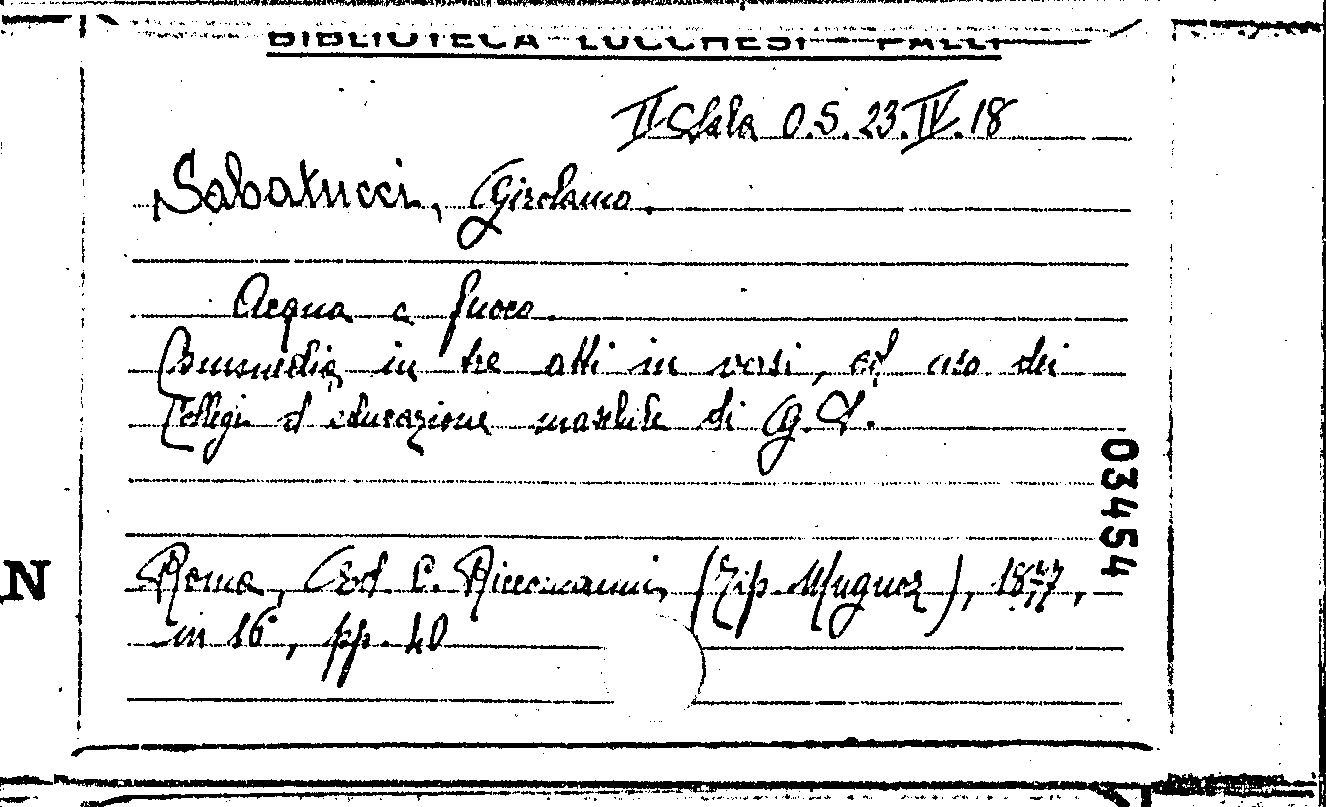 BIBLIOTECA LUCCHESI - PALLI
II Sala O.S. 23. IV. 18
Sabatucci, Girolamo.
Acqua e fuoco.
Commedia in tre atti in versi, ad uso dei
Collegi d'educazione maschile di G. S.
03454
N
Roma, Ed. C. Riccomanni, (Tip. Mugnoz), 1877,
in 16°, pp. 40